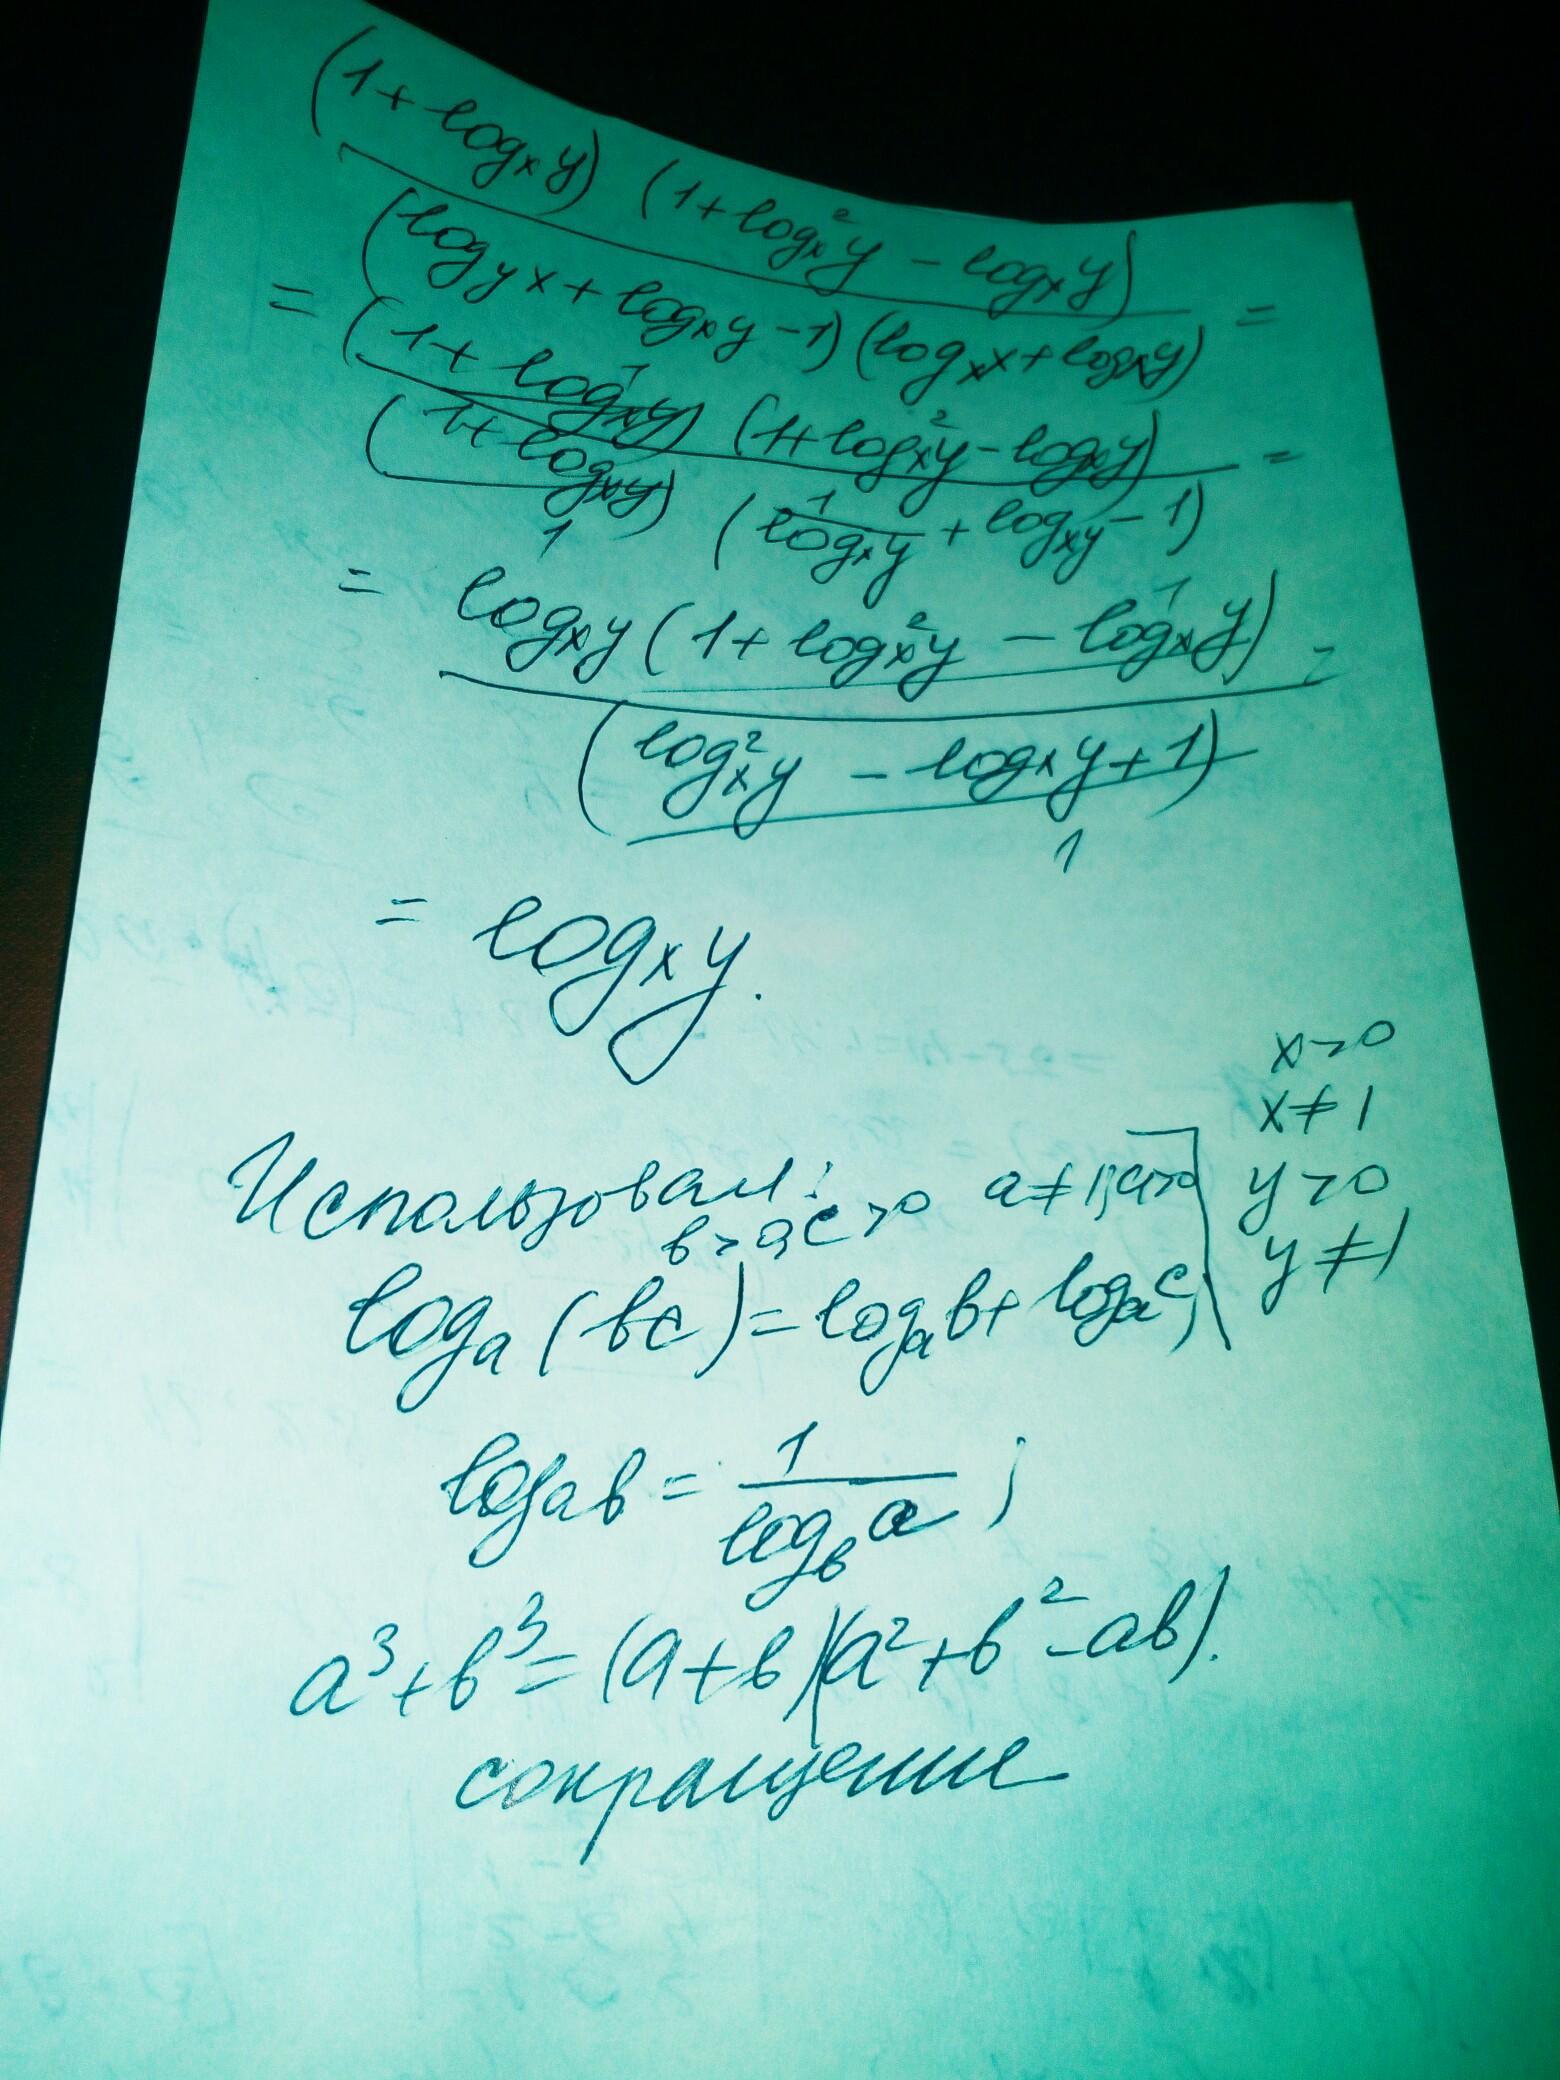 (1 + log_x y) (1 + log_x^2 y − log_x y)
(log_y x + log_x y − 1) (log_x x + log_x y) =
= (1 + log_x y) (1 + log_x^2 y − log_x y) 1
(1 + log_x y) (1/log_x y + log_x y − 1) =
1
= log_x y (1 + log_x^2 y − log_x y) 1
(log_x^2 y − log_x y + 1) =
1
= log_x y.
x > 0
x ≠ 1
y > 0
y ≠ 1
Использовали:
в > 0, c > 0 a ≠ 1, a > 0
log_a (вc) = log_a в + log_a c;
log_a в = 1/log_в a ;
a³ + в³ = (a + в)(a² + в² − aв).
сокращение